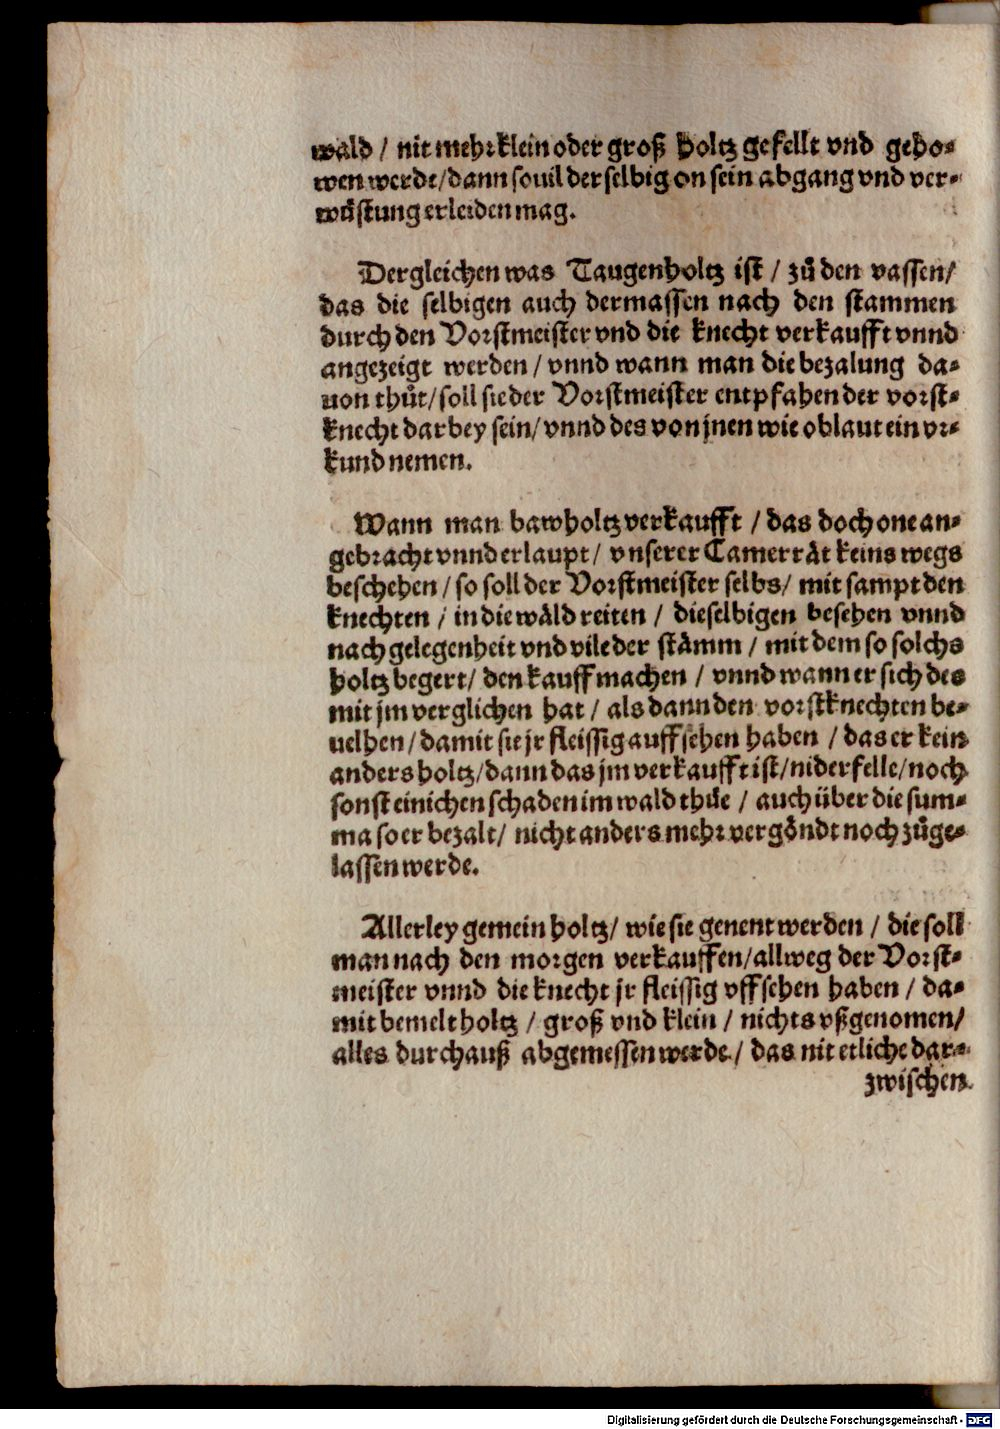 wald / nit mehr klein oder groß holtz gefellt vnd geho-
wen werde/dann souil der selbig on sein abgang vnd ver-
wůstung erleiden mag.
Dergleichen was Taugenholtz ist / zů den vassen/
das die selbigen auch dermassen nach den stammen
durch den Vorstmeister vnd die knecht verkaufft vnnd
angezeigt werden / vnnd wann man die bezalung da-
uon thůt/soll sie der Vorstmeister entpfahen der vorst-
knecht darbey sein/ vnnd des von jnen wie oblaut ein vr-
kund nemen.
Wann man bawholtz verkaufft / das doch one an-
gebracht vnnd erlaupt/ vnserer Camerrät keins wegs
beschehen / so soll der Vorstmeister selbs/ mit sampt den
knechten / in die wäld reiten / dieselbigen besehen vnnd
nach gelegenheit vnd vile der stämm / mit dem so solchs
holtz begert/ den kauff machen / vnnd wann er sich des
mit jm verglichen hat / als dann den vorstknechten be-
uelhen / damit sie jr fleissig auffsehen haben / das er kein
anders holtz/dann das jm verkaufft ist/nider felle/noch
sonst einichen schaden im wald thüe / auch über die sum-
ma so er bezalt/ nicht anders mehr vergöndt noch zůge-
lassen werde.
Allerley gemein holtz/ wie sie genent werden / die soll
man nach den morgen verkauffen/allweg der Vorst-
meister vnnd die knecht jr fleissig vffsehen haben / da-
mit bemelt holtz / groß vnd klein / nichts vßgenomen/
alles durchauß abgemessen werde / das nit etliche dar-
zwischen
Digitalisierung gefördert durch die Deutsche Forschungsgemeinschaft - DFG